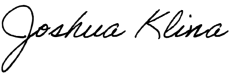 Joshua Klina